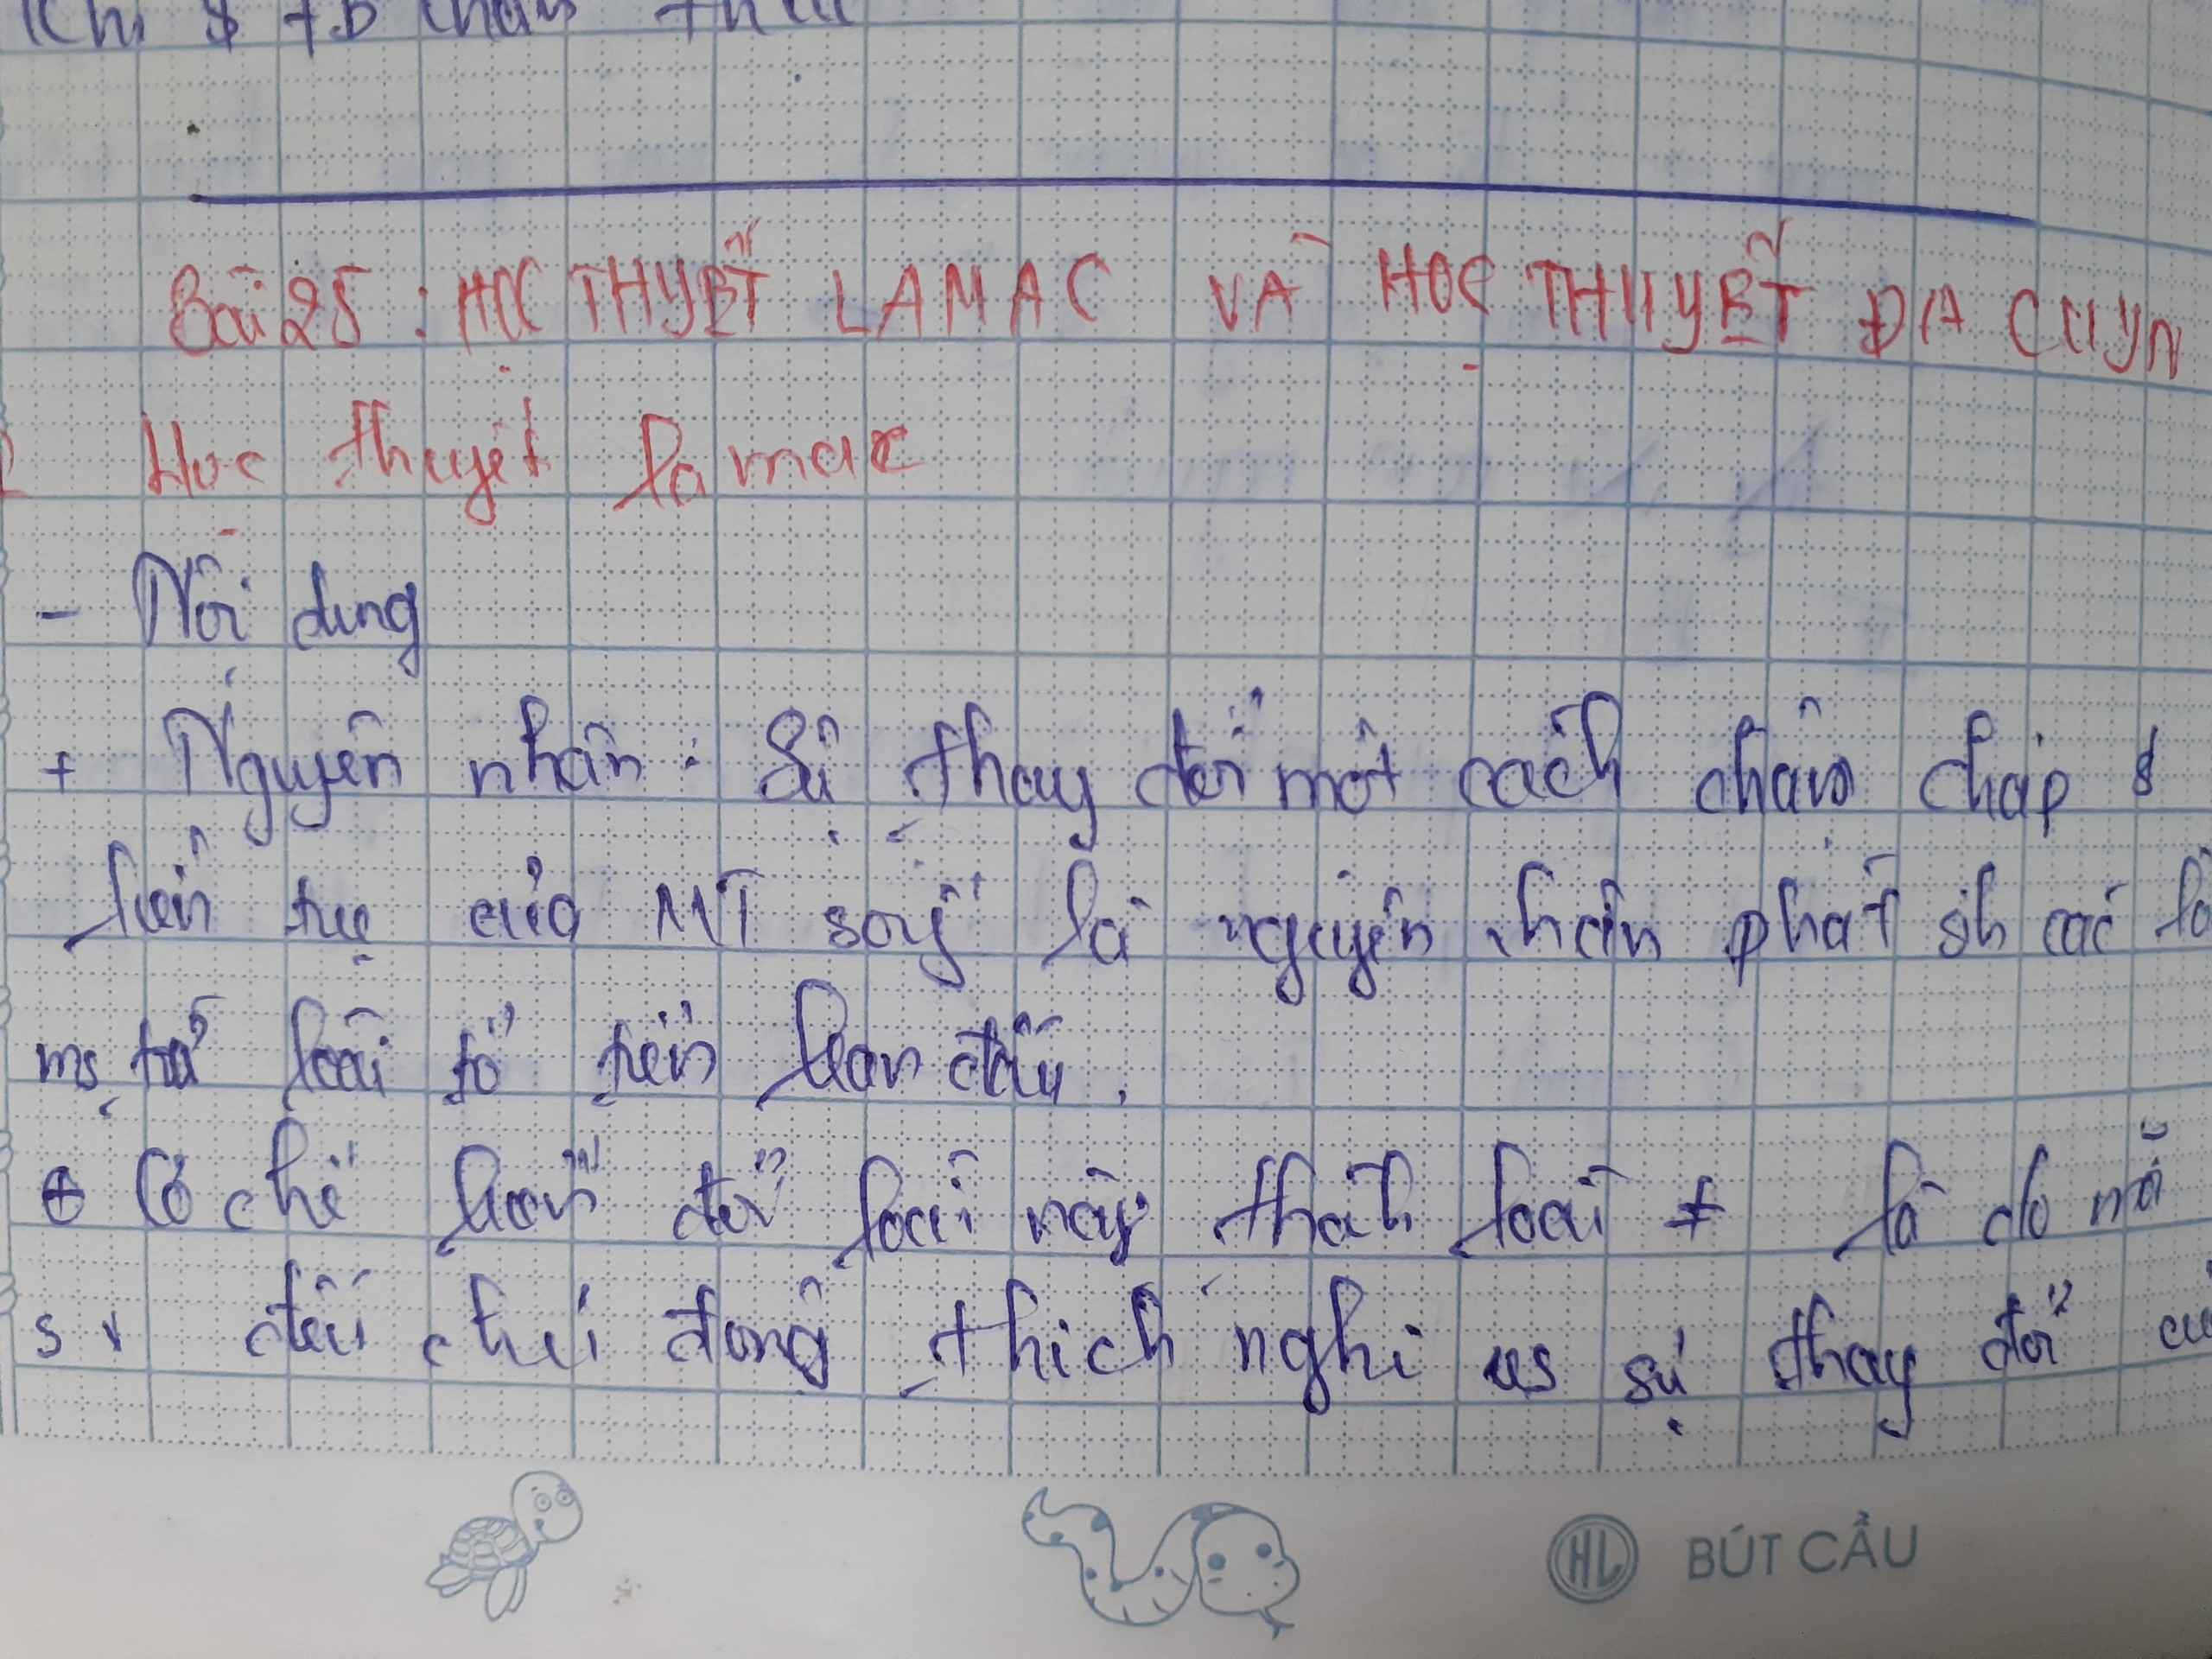 Bài 25 : HỌC THYẾT LAMAC VÀ HỌC THUYẾT ĐA CUYN
Học thuyết Lamac
- Nội dung
+ Nguyên nhân : Sự thay đổi một cách chậm chạp &
liên tục của MT sống là nguyên nhân phát sh các
ms từ loài tổ tiên ban đầu .
+ Cơ chế biến đổi loài này thành loài ≠ là do mỗi
sv đều chủ động thích nghi vs sự thay đổi
HL BÚT CẦU